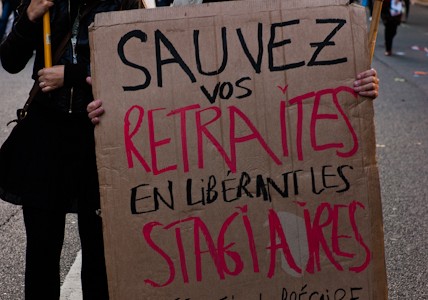 SAUVEZ
VOS
RETRAÏTES
EN LIBÉRANT LES
STAGIAIRES
PRÉCAIRE